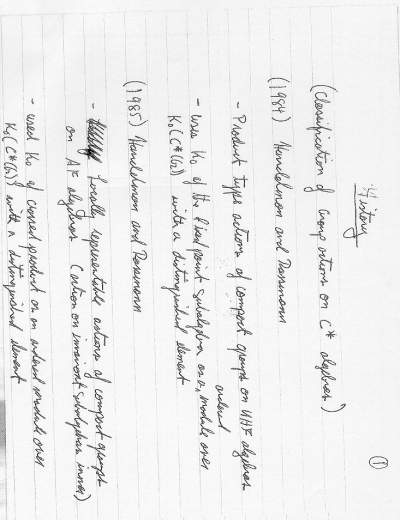 ①
History
(Classification of Group actions on C* algebras)
(1984) Handelman and Rossmann
- Product type actions of compact groups on UHF algebras
- uses K₀ of the fixed point subalgebra as an ordered module over
K₀(C*(G)) with a distinguished element
(1985) Handelman and Rossmann
- Locally representable actions of compact groups
on AF algebras (action on invariant subalgebras inner)
- used K₀ of crossed product as an ordered module over
K₀(C*(G)) with a distinguished element